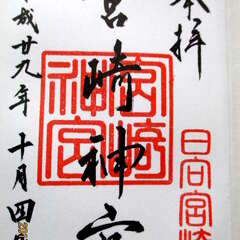 奉拝
宮崎神宮
平成廿九年十月四日
宮崎神宮
日向宮崎